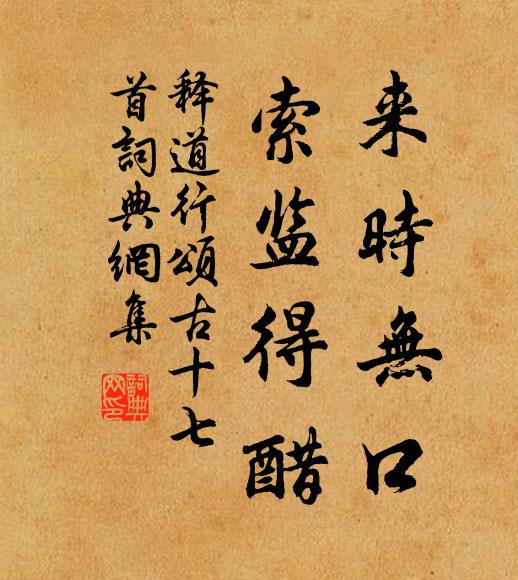 来時無口
索监得醋
释道行頌古十七
首詞典網集
詞典網印